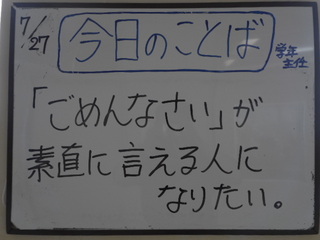 7/27
今日のことば
学年
主任
「ごめんなさい」が
素直に言える人に
なりたい。